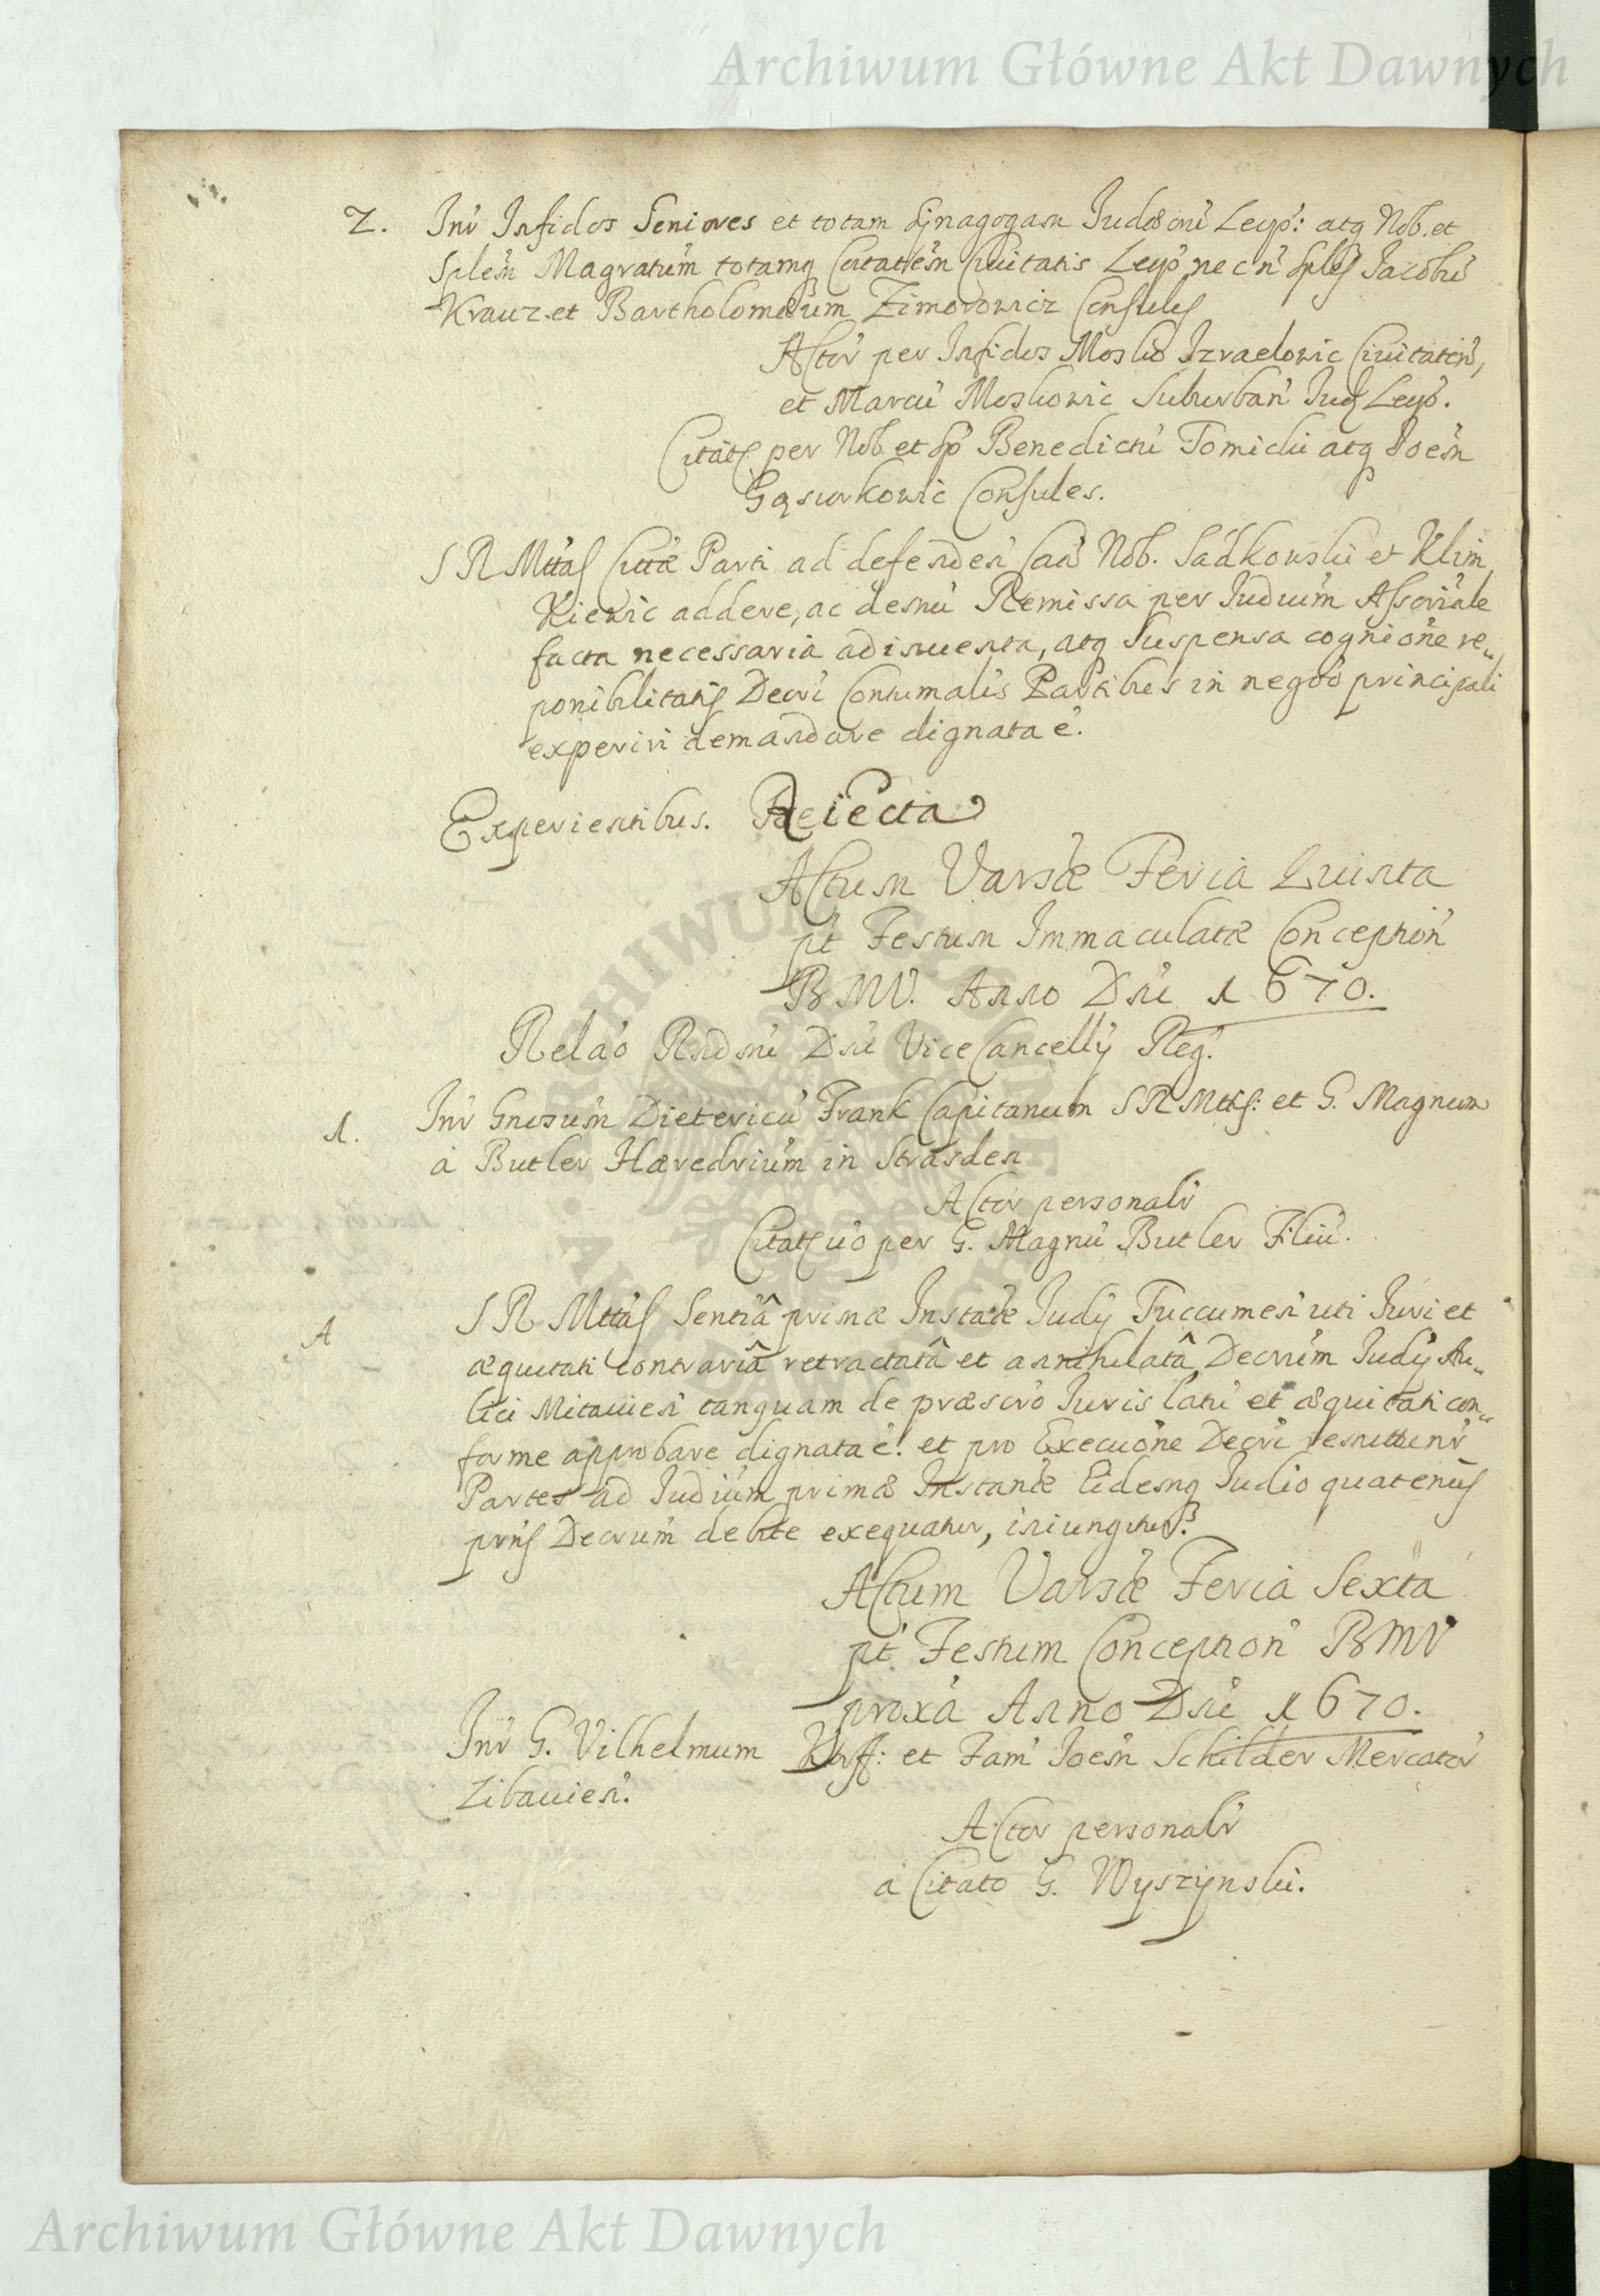 Archiwum Główne Akt Dawnych
2. Inr Infidos Seniores et totam Synagogam Judæorũ Leop: atq Nob. et
Splem̃ Magratum̃ totamq Coitatem̃ Civitatis Leop nec n̄ Spleſ Jacobũ
Krauz et Bartholomæum Zimorowicz Consules
Actor per Infidos Mosko Izraelowic Civitaten̄,
et Marcũ Moskowic Suburban̄ Jud Leop.
Citatꝰ per Nob. et Sp Benedictũ Tomicki atq Joem̃
Gąsiorkowic Consules.
S R Mttas Cittæ Parti ad defenden̄ Cau Nob. Sadkowski et Klim
kiewic addere, ac demũ Remissa per Judium̃ Assoriale
facta necessaria adinventa, atq suspensa cognione re„
ponibilitatis Decri Contumalis Partibus in negoo principali
experiri demandare dignata ē.
Experientibus. Reiecta
Actum Varsæ Feria Quinta
pt Festum Immaculatæ Conception̄
BMV. Anno Dni 1670.
Relao Rndmi Dni ViceCancellij Reg.
1. Inr Gnosum̃ Dietericũ Frank Capitanum S R Mttis: et G. Magnum
à Butler Hæredrium̃ in Strasden
Actor personalr
Citatꝰ vo per G. Magnũ Butler Filiũ.
A S R Mttas Sentiâ primæ Instaæ Judij Tuccumen̄ uti Juri et
æquitati contrariâ retractatâ et annihilatâ Decrum̃ Judij Au„
lici Mitavien̄ tanquam de præscro Juris latũ et æquitati con„
forme approbare dignata ē. et pro Execuone Decri remittunr
Partes ad Judium̃ primæ Instantæ Eidemq Judio quatenus
prus̃ Decrum̃ debite exequatur, iniungitur.
Actum Varsæ Feria Sexta
pt Festum Conception̄ BMV
proxa Anno Dni 1670.
Inr G. Vilhelmum et Fam Joem̃ Schilder Mercator
Libavien̄.
Actor personalr
à Citato G. Wyszynski.
Archiwum Główne Akt Dawnych